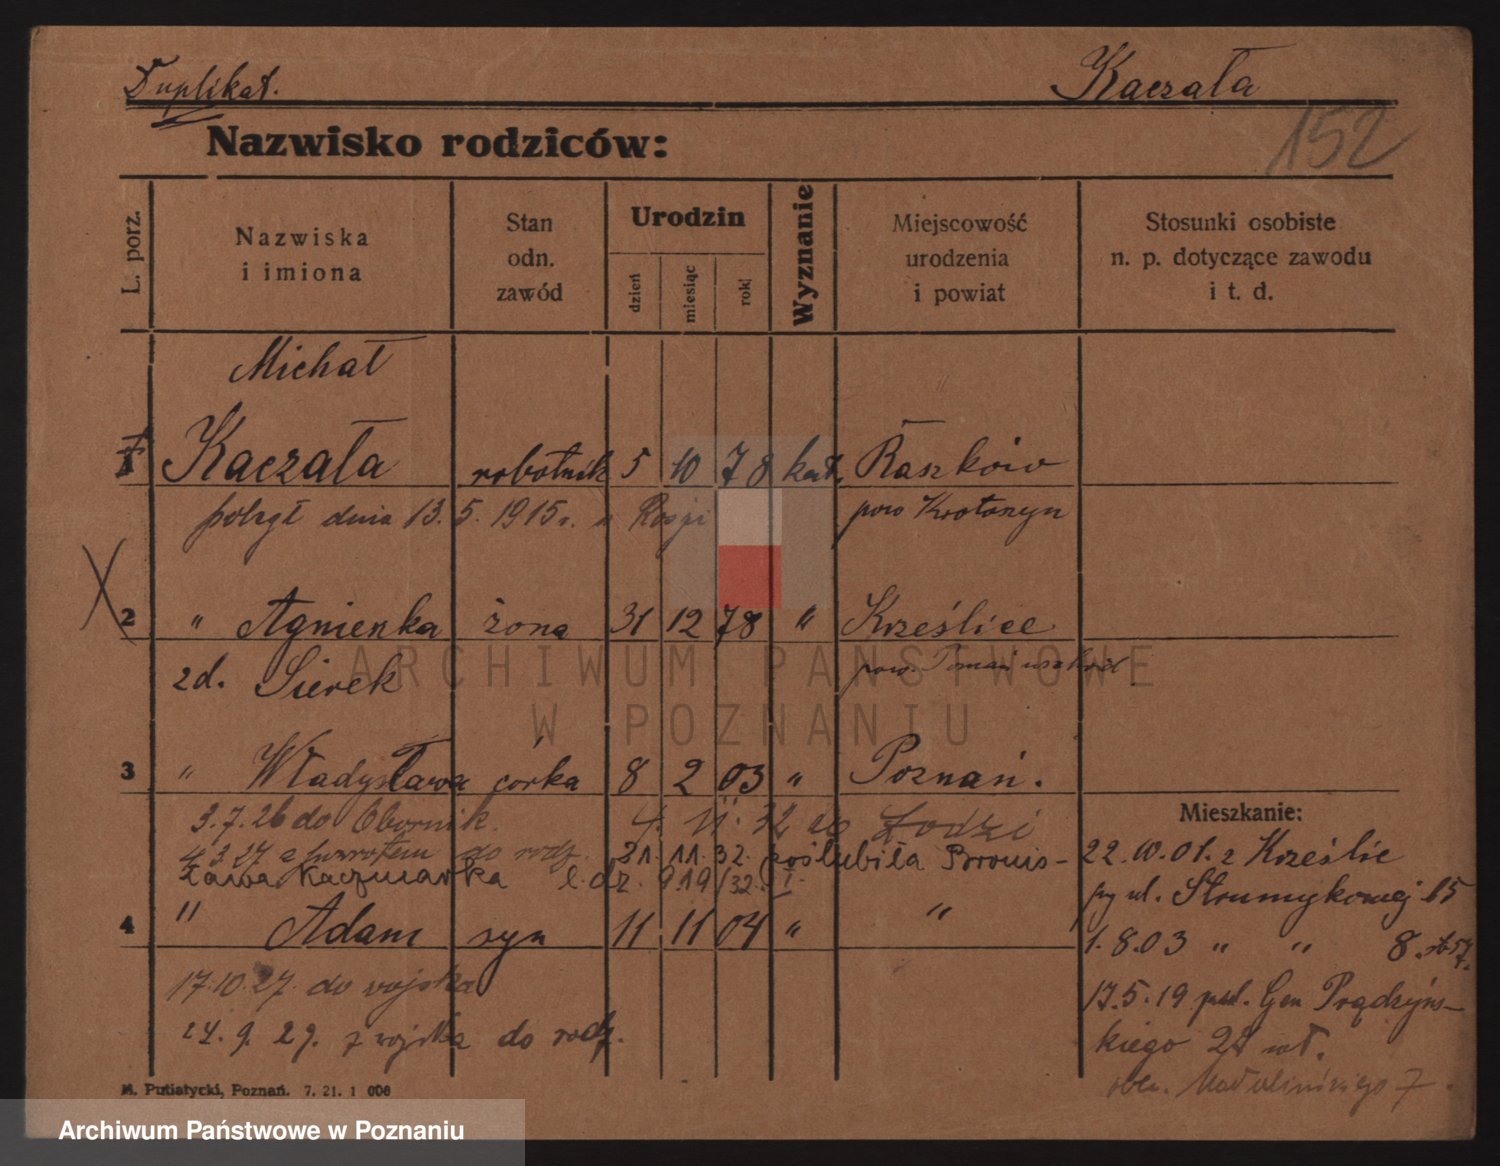 Duplikat.
Kaczała
152
Nazwisko rodziców:
L. porz.
Nazwiska
i imiona
Stan
odn.
zawód
Urodzin
dzień
miesiąc
rok
Wyznanie
Miejscowość
urodzenia
i powiat
Stosunki osobiste
n. p. dotyczące zawodu
i t. d.
Michał
1 Kaczała robotnik 5 10 78 kat. Raszków
poległ dnia 13. 5. 1915r. w Rosji pow Krotoszyn
2 " Agnieszka żona 31 12 78 " Krześlice
zd. Sierek pow.
3 " Władysława córka 8 2 03 " Poznań.
3.7.26 do Obornik. 4. 11. 32 do Łodzi
4.3.27 z powrotem do rodz. 31. 11. 32. poślubiła Bronis-
ława Kaczmarka l. dz. 919/32. I.
4 " Adam syn 11 11 04 " "
17.10.27. do wojska
24. 9. 29. z wojska do rodz.
Mieszkanie:
22.10.01. z Krześlic
przy ul. Strumykowej 15
1. 8. 03 " " 8.
17. 5. 19 Gen Prądzyńs-
kiego 22 wł.
7.
M. Putiatycki, Poznań. 7. 21. 1 000
ARCHIWUM PAŃSTWOWE
W POZNANIU
Archiwum Państwowe w Poznaniu